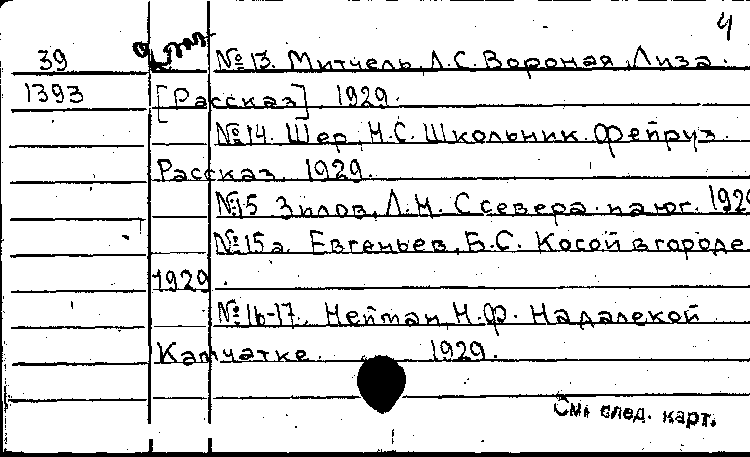 4
39 №13. Митчель, Л.С. Вороная Лиза.
1393 [Рассказ]. 1929.
№14. Шер, Н.С. Школьник Фейруз.
Рассказ. 1929.
№15 Зилов, Л.Н. С севера на юг. 1929
№15а. Евгеньев, Б.С. Косой в городе
1929.
№16-17. Нейман, Н.Ф. На далекой
Камчатке. 1929.
См. след. карт.